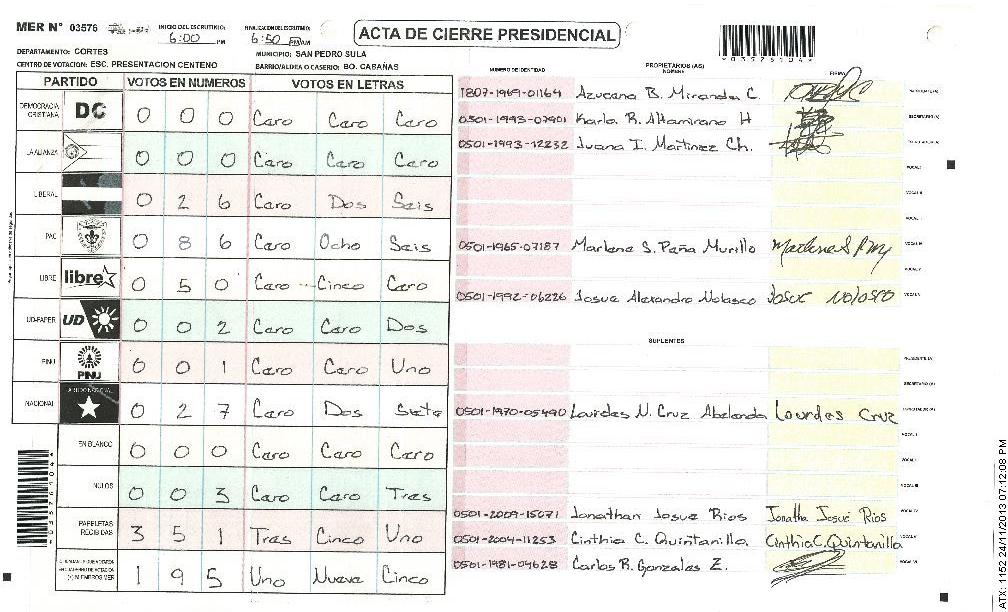 MER N° 03576
INICIO DEL ESCRUTINIO: 6:00 PM
FINALIZACION ESCRUTINIO: 6:50 PM AM
ACTA DE CIERRE PRESIDENCIAL
*03576104*
DEPARTAMENTO: CORTES
MUNICIPIO: SAN PEDRO SULA
CENTRO DE VOTACION: ESC. PRESENTACION CENTENO
BARRIO/ALDEA O CASERIO: BO. CABAÑAS
PARTIDO VOTOS EN NUMEROS VOTOS EN LETRAS
DEMOCRACIA CRISTIANA DC 0 0 0 Caro Caro Caro
LA ALIANZA 0 0 0 Caro Caro Caro
LIBERAL 0 2 6 Caro Dos Sais
PAC 0 8 6 Caro Ocho Sais
LIBRE libre 0 5 0 Caro Cinco Caro
UD-FAPER UD 0 0 2 Caro Caro Dos
PINU PINU 0 0 1 Caro Caro Uno
NACIONAL 0 2 7 Caro Dos Siete
EN BLANCO 0 0 0 Caro Caro Caro
NULOS 0 0 3 Caro Caro Tras
PAPELETAS RECIBIDAS 3 5 1 Tras Cinco Uno
(+) MIEMBROS MER 1 9 5 Uno Nueve Cinco
NUMERO DE IDENTIDAD
PROPIETARIOS (AS)
NOMBRE
FIRMA
1807-1969-01164 Azucana B. Miranda C.
0501-1993-07901 Karla R. Altamirano H
0501-1993-12232 Juana I. Martinez Ch.
0501-1965-07187 Marlene S. Paña Murillo Marlene S P My
0501-1992-06226 Josue Alexandro Nolasco Josue Nolasco
SUPLENTES
PRESIDENTE (A)
SECRETARIO (A)
0501-1970-05490 Lourdes N. Cruz Abelenda Lourdes Cruz
0501-2009-15071 Jonathan Josue Rios Jonatha Josué Rios
0501-2004-11253 Cinthia C. Quintanilla Cinthia C. Quintanilla
0501-1981-04628 Carlos R. Gonzales Z.
*03576104*
ATX: 1152 24/11/2013 07:12:08 PM